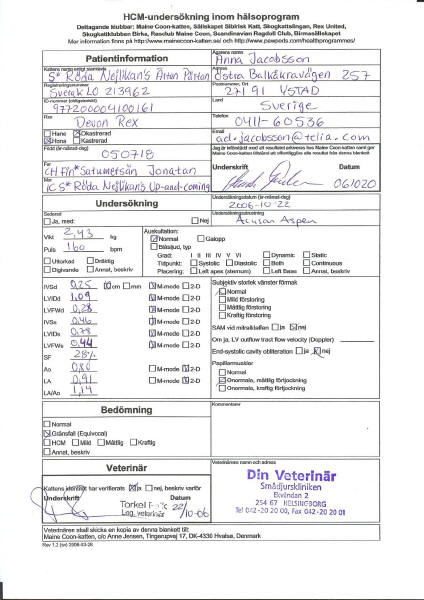 HCM-undersökning inom hälsoprogram
Deltagande klubbar: Maine Coon-katten, Sällskapet Sibirisk Katt, Skogkattslingan, Rex United,
Skogkattklubben Birka, Rasclub Maine Coon, Scandinavian Ragdoll Club, Birmasällskapet
Patientinformation
Ägarens namn
Anna Jacobsson
Kattens namn enligt stamtavla
S* Röda Nejlikan's Arton Påfton
Östra Balkåkravägen 257
Registreringsnummer
Sverak LO 213962
Postnummer, Ort
27191 YSTAD
ID-nummer (obligatoriskt)
977200004100161
Land
Sverige
Ras
Devon Rex
Telefon
0411-60536
Hane Okastrerad
Hona Kastrerad
Email
ad.jacobsson@telia.com
Född (år-månad-dag)
050718
Far
CH Fin* Satumetsän Jonatan
Mor
IC S* Röda Nejlikan's Up-and-coming
Underskrift Datum (år-månad-dag)
061020
Undersökning
Undersökningsdatum (år-månad-dag)
2006-10-22
Sederad
Ja, med: Nej
Undersökningsutrustning
Acuson Aspen
Vikt 2,93 kg
Puls 160 bpm
Uttorkad Dräktig
Digivande Annat, beskriv
Auskultation:
Normal Galopp
Blåsljud, typ
Grad: I II III IV V VI Dynamic Static
Tidpunkt: Systolic Diastolic Both Continuous
Placering: Left apex (sternum) Left Base Annat, beskriv
IVSd 0,25 cm mm M-mode 2-D
LVIDd 1,09 M-mode 2-D
LVFWd 0,28 M-mode 2-D
IVSs 0,46 M-mode 2-D
LVIDs 0,78 M-mode 2-D
LVFWs 0,44 M-mode 2-D
SF 28%
Ao 0,80 M-mode 2-D
LA 0,91 M-mode 2-D
LA/Ao 1,14
Subjektiv storlek vänster förmak
Normal
Mild förstoring
Måttlig förstoring
Kraftig förstoring
SAM vid mitralisklaffen ja nej
Om ja, LV outflow tract flow velocity (Doppler)
End-systolic cavity obliteration ja nej
Papillarmuskler
Normal
Onormala, måttlig förtjockning
Onormala, kraftig förtjockning
Bedömning
Kommentarer
Normal
Gränsfall (Equivocal)
HCM Mild Måttlig Kraftig
Annat, beskriv
Veterinär
Kattens identitet har verifierats ja nej, beskriv varför
Underskrift Datum
22/10-06
Leg. veterinär
Veterinärens namn och adress
Din Veterinär
Smådjurskliniken
Ekvändan 2
254 67 HELSINGBORG
Tel 042-20 20 00, Fax 042-20 20 01
Veterinären skall skicka en kopia av denna blankett till:
Maine Coon-katten, c/o Anne Jensen, Tingerupvej 17, DK-4330 Hvalsø, Denmark